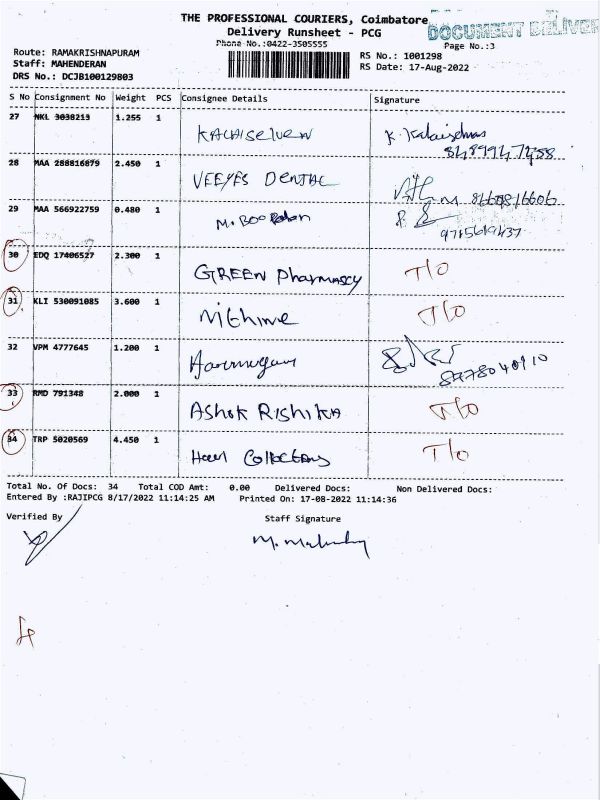 THE PROFESSIONAL COURIERS, Coimbatore
DOCUMENT DELIVER
Delivery Runsheet - PCG
Phone No.:0422-3505555
Page No.:3
Route: RAMAKRISHNAPURAM
Staff: MAHENDERAN
DRS No.: DCJB100129803
RS No.: 1001298
RS Date: 17-Aug-2022
S No Consignment No Weight PCS Consignee Details Signature
27 NKL 3038213 1.255 1 KALAISELVEN K. Kalaiselvan
28 MAA 288816879 2.450 1 VEEYES DENTAL
29 MAA 566922759 0.480 1 M. 9715619437
30 EDQ 17406527 2.300 1 GREEN Pharmascy T/O
31 KLI 530091085 3.600 1 T/O
32 VPM 4777645 1.200 1
33 RMD 791348 2.000 1 ASHOK RISHIKA T/O
34 TRP 5020569 4.450 1 T/O
Total No. Of Docs: 34 Total COD Amt: 0.00 Delivered Docs: Non Delivered Docs:
Entered By :RAJIPCG 8/17/2022 11:14:25 AM Printed On: 17-08-2022 11:14:36
Verified By Staff Signature